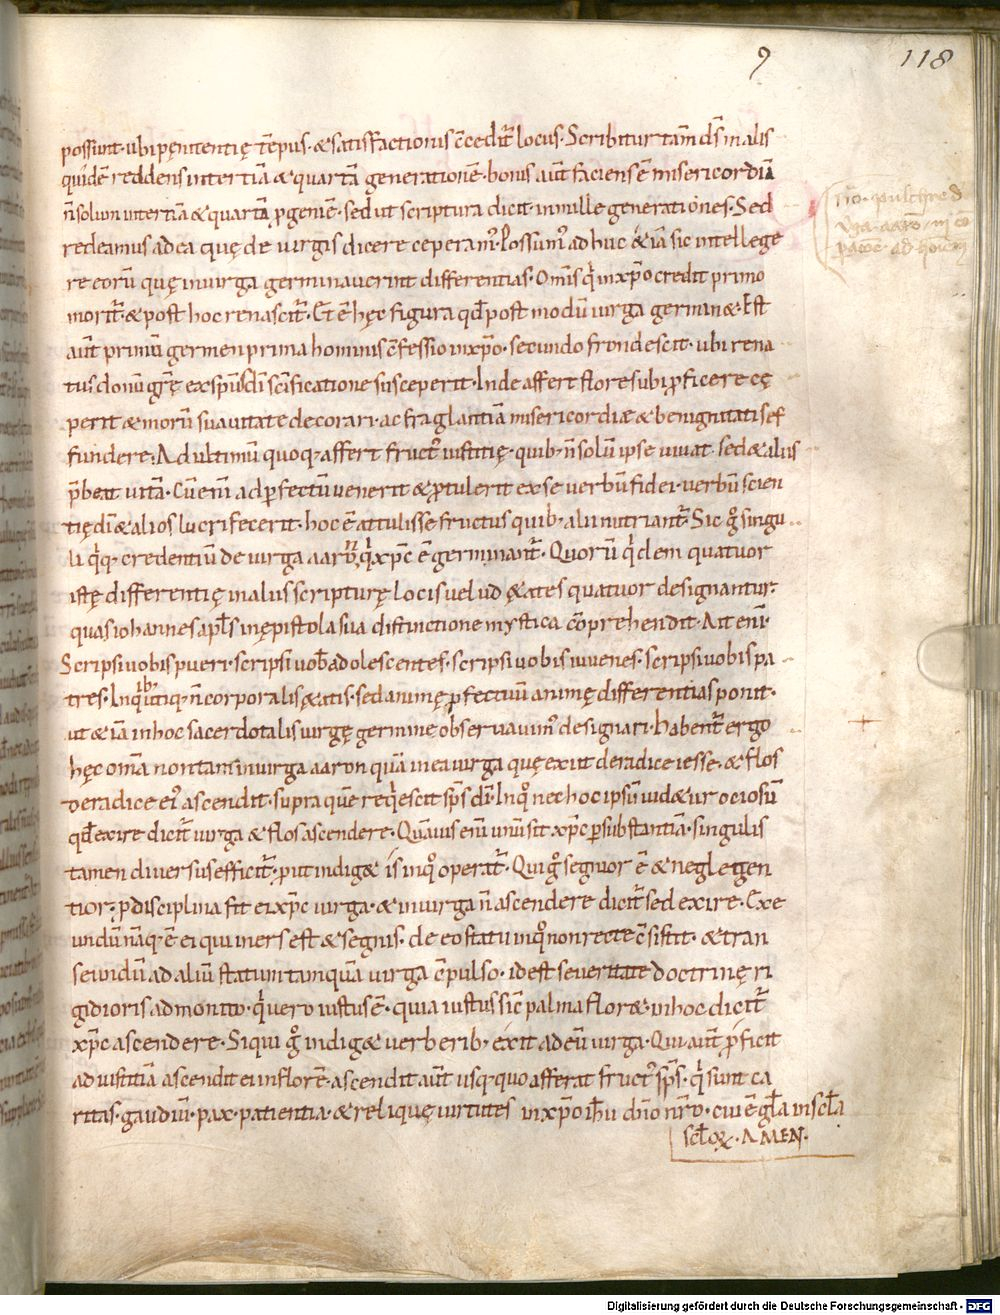 9
118
possunt· ubi pęnitentię tēp̄us· & satisfactionis c̄cedit̄ locus· Scribitur tam̄ d̄s malis
quidē reddens in tertiā & quartā generationē· bonis aut̄ faciens ē misericordiā
n̄ solum in tertiā & quartā p̱geniē· sed ut scriptura dicit· in mille generationes· Sed
redeamus ad ea quę de virgis dicere ceperam᾽· Possum᾽ adhuc & iā sic intellege
re eorū quę in virga germinaverint differentias· Om̄is qͥ in xp̄o credit primo
morit̄· & post hoc renascit̄· Et ē hęc figura qd̄ postmodū virga germin&· Est
aut̄ primū germen prima hominis c̄fessio in xp̄o· secundo frondescit· ubi rena
tus donū gr̄ę ex sp̄us dī sc̄ificatione susceperit· Inde affert flores ubi p̱ficere cę
perit & morū suavitate decorari· ac fraglantiā misericordiæ & benignitatis ef
fundere· Ad ultimū quoq· affert fruct᾽ iustitię· quib· n̄ solū ipse vivat· sed & aliis
p̄beat vitā· Cū eni᷑ ad p̱fectū venerit & p̱tulerit ex se verbū fidei· verbū scien
tię dī & alios lucrifecerit· hoc ē attulisse fructus quib· alii nutriant̄· Sic g͛ singu
li qͥq· credentiū de virga aaron· qͥ xp̄c ē germinant̄· Quorū qͥdem quatuor
istę differentię in aliis scripturę locis velud ę&ates quatuor designantur·
quas iohannes apl̄s in epistola sua distinctione mystica cōprehendit· Ait eni᷑·
Scripsi vobis pueri· scripsi vob̄ adolescentes· scripsi vobis iuvenes· scripsi vobis pa
tres· In qͥb· utiq· n̄ corporalis ę&atis· sed animę p̱fectuū animę differentias ponit·
ut & iā in hoc sacerdotalis virgę germine observavim᾽ designari· Habent̄ ergo
hęc om̄a non tam in virga aaron quā in ea virga quę exiit de radice iesse· & flos
de radice ei᾽ ascendit· supra quē reqͥescit sp̄s dī· In qͦ nec hoc ipsū vid&ur ociosū
qd̄ exire dicit̄ virga & flos ascendere· Quāvis eni᷑ unus sit xp̄c p̱ substantiā· singulis
tamen diversus efficit̄· p̱ut indig& is in qͦ operat̄· Qui g͛ segnior ē & neglegen
tior· p̱ disciplina fit ei xp̄c virga· & in virga n̄ ascendere dicit̄ sed exire· Exe
undū nāq· ē ei qui iners est & segnis· de eo statu in qͦ non recte c̄sistit· & tran
seundū ad aliū statum tanquā virga c̄pulso· id est severitate doctrinę ri
gidioris admonito· qͥ vero iustus ē· quia iustus sic̄ palma flor&· in hoc dicit̄
xp̄c ascendere· Siqui g͛ indig& verberib· exit ad eū virga· Qui aut̄ p̱ficit
ad iustitiā ascendit ei in florē· ascendit aut̄ usq· quo afferat fruct᾽ sp̄s· qͥ sunt ca
ritas· gaudiū· pax· patientia· & reliquę virtutes in xp̄o ih̄u dn̄o nr̄o· cui ē gl̄a in scl̄a
scl̄oꝝ· AMEN·
Digitalisierung gefördert durch die Deutsche Forschungsgemeinschaft - DFG